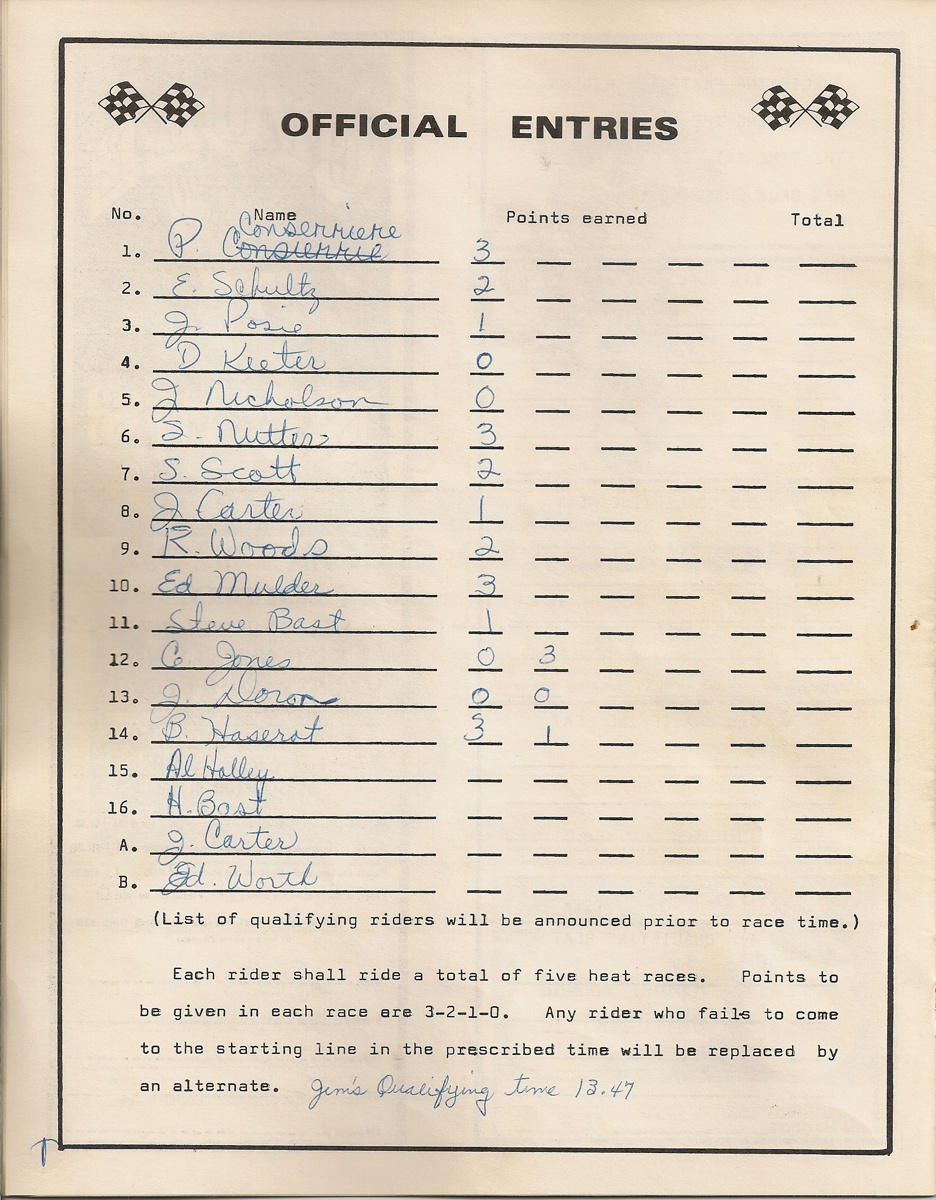 OFFICIAL ENTRIES
No. Name Points earned Total
Conserriere
1. P. 3
2. E. Schultz 2
3. J. Posie 1
4. D Keeter 0
5. J Nicholson 0
6. S. Nutter 3
7. S. Scott 2
8. J Carter 1
9. R. Woods 2
10. Ed Mulder 3
11. Steve Bast 1
12. C. Jones 0 3
13. J. Doron 0 0
14. B. Haserot 3 1
15. Al Holley
16. H. Bast
A. J. Carter
B. Ed. Worth
(List of qualifying riders will be announced prior to race time.)
Each rider shall ride a total of five heat races. Points to
be given in each race are 3-2-1-0. Any rider who fails to come
to the starting line in the prescribed time will be replaced by
an alternate. Jim's Qualifying time 13.47